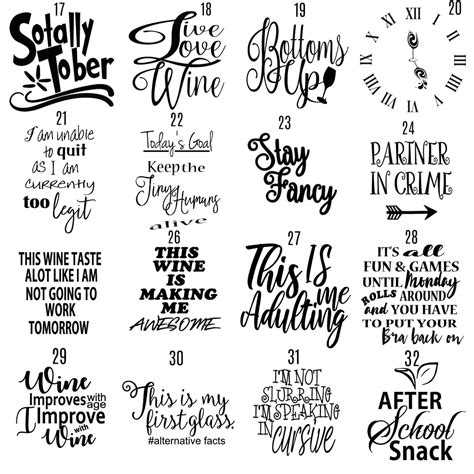 17
Sotally
Tober
18
Live
Love
Wine
19
Bottoms
Up
20
XII
I
II
III
IIII
V
VI
VII
VIII
IX
X
XI
21
I am unable
to quit
as I am
currently
too legit
22
Today's Goal
Keep the
Tiny Humans
alive
23
Stay
Fancy
24
PARTNER
IN CRIME
THIS WINE TASTE
ALOT LIKE I AM
NOT GOING TO
WORK
TOMORROW
26
THIS
WINE IS
MAKING
ME
AWESOME
27
This IS
me
Adulting
28
IT'S all
FUN & GAMES
UNTIL Monday
ROLLS AROUND
and YOU HAVE
TO PUT YOUR
Bra back on
29
Wine
Improves with
age
I Improve
with
Wine
30
This is my
first glass.
#alternative facts
31
I'M NOT
SLURRING
I'M SPEAKING
IN
cursive
32
AFTER
School
Snack